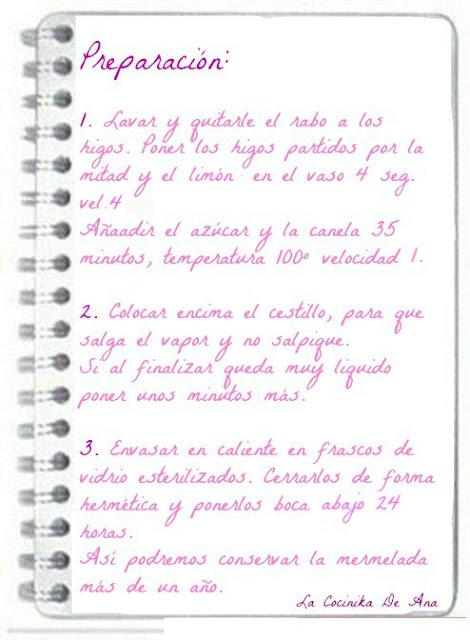 Preparación:
1. Lavar y quitarle el rabo a los
higos. Poner los higos partidos por la
mitad y el limón en el vaso 4 seg.
vel.4
Añaadir el azúcar y la canela 35
minutos, temperatura 100º velocidad 1.
2. Colocar encima el cestillo, para que
salga el vapor y no salpique.
Si al finalizar queda muy liquido
poner unos minutos más.
3. Envasar en caliente en frascos de
vidrio esterilizados. Cerrarlos de forma
hermética y ponerlos boca abajo 24
horas.
Así podremos conservar la mermelada
más de un año.
La Cocinika De Ana